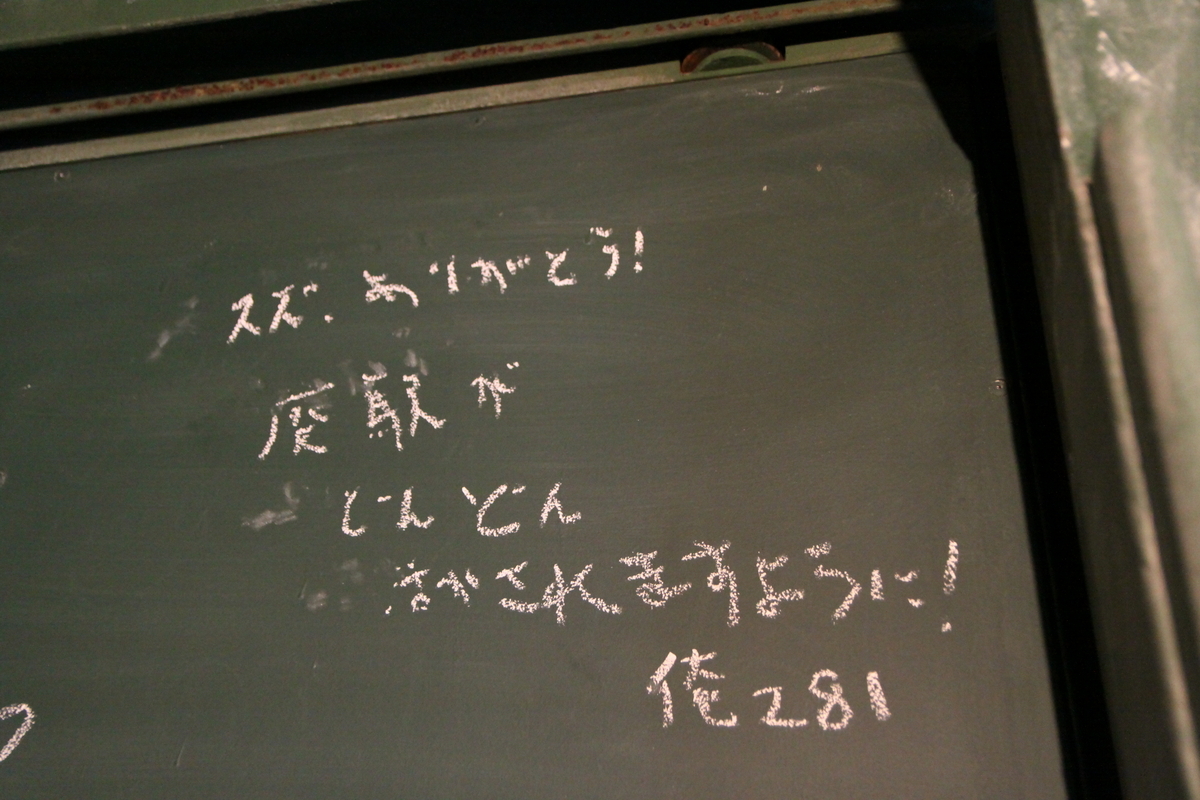 スズ、ありがとう!
廃駅が
じんどん
活かされますように!
俺281